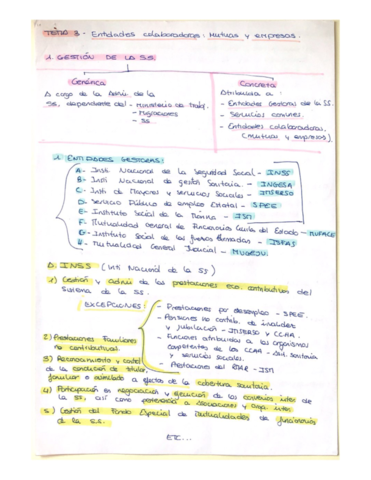 TEMA 3 - Entidades colaboradoras: Mutuas y empresas.
1. GESTIÓN DE LA SS.
Genérica
A cargo de la Admi. de la
SS, dependiente del - Ministerio de Trabj.
- Migraciones
- SS.
Concreta
Atribuida a:
- Entidades Gestoras de la SS.
- Servicios comunes.
- Entidades colaboradoras
(mutuas y empresas).
1. ENTIDADES GESTORAS:
A- Insti. Nacional de la Seguridad Social - INSS
B- Insti. Nacional de gestión Sanitaria - INGESA
C- Insti. de Mayores y Servicios Sociales - IMSERSO
D- Servicio Público de empleo Estatal - SPEE
E- Instituto Social de la Marina - ISM
F- Mutualidad General de Funcionarios Civiles del Estado - MUFACE
G- Instituto Social de las fuerzas Armadas - ISFAS
H- Mutualidad General Judicial - MUGEJU
A. INSS (Insti Nacional de la SS)
1) Gestión y admin de las prestaciones eco. contributivas del
Sistema de la SS.
EXCEPCIONES
- Prestaciones por desempleo - SPEE.
- Pensiones no contrib. de invalidez
y jubilación - IMSERSO y CCAA.
- Funciones atribuidas a los organismos
competentes de las CCAA - Asi. sanitaria
y servicios sociales.
- Prestaciones del RTMAR - ISM
2) Prestaciones Familiares
no contributivas.
3) Reconocimiento y control
de la condición de titular,
familiar o asimilado a efectos de la cobertura sanitaria.
4) Participación en negociación y ejecución de los convenios inter. de
la SS, así como pertenencia a asociaciones y orga. inter.
5) Gestión del Fondo Especial de Mutualidades de funcionarios
de la SS.
ETC...